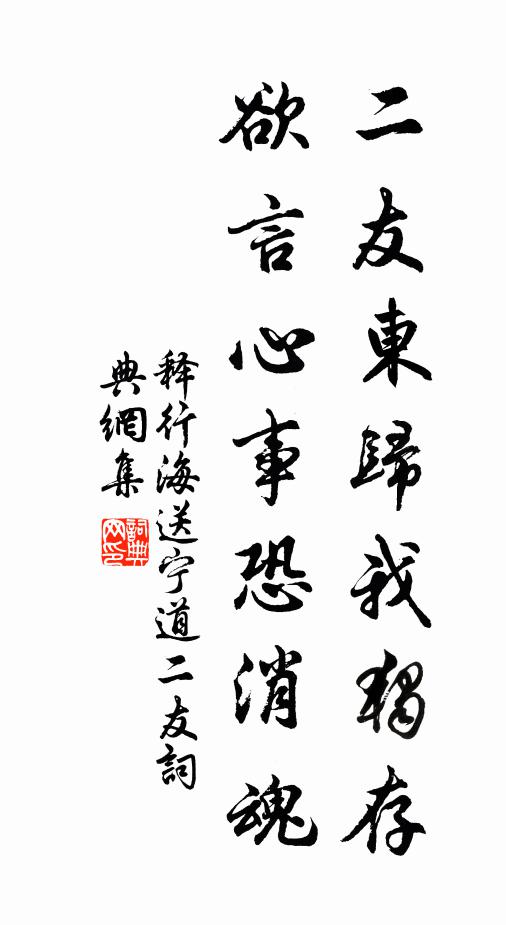 二友東歸我獨存
欲言心事恐消魂
释行海送宁道二友詞
典網集
詞典网印